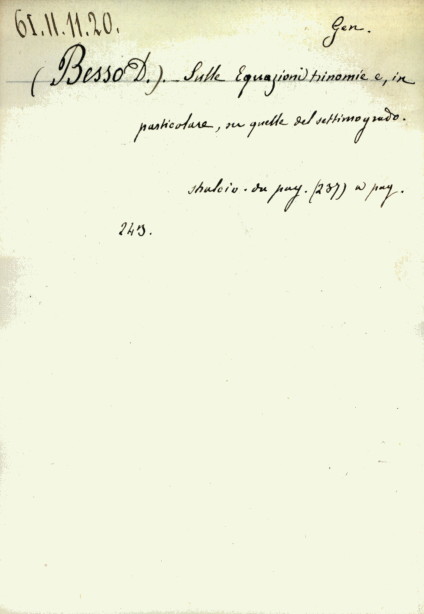 61.11.11.20.
Gen.
(Besso D.). Sulle Equazioni trinomie e, in
particolare, su quelle del settimo grado.
stralcio. da pag. (237) a pag.
243.